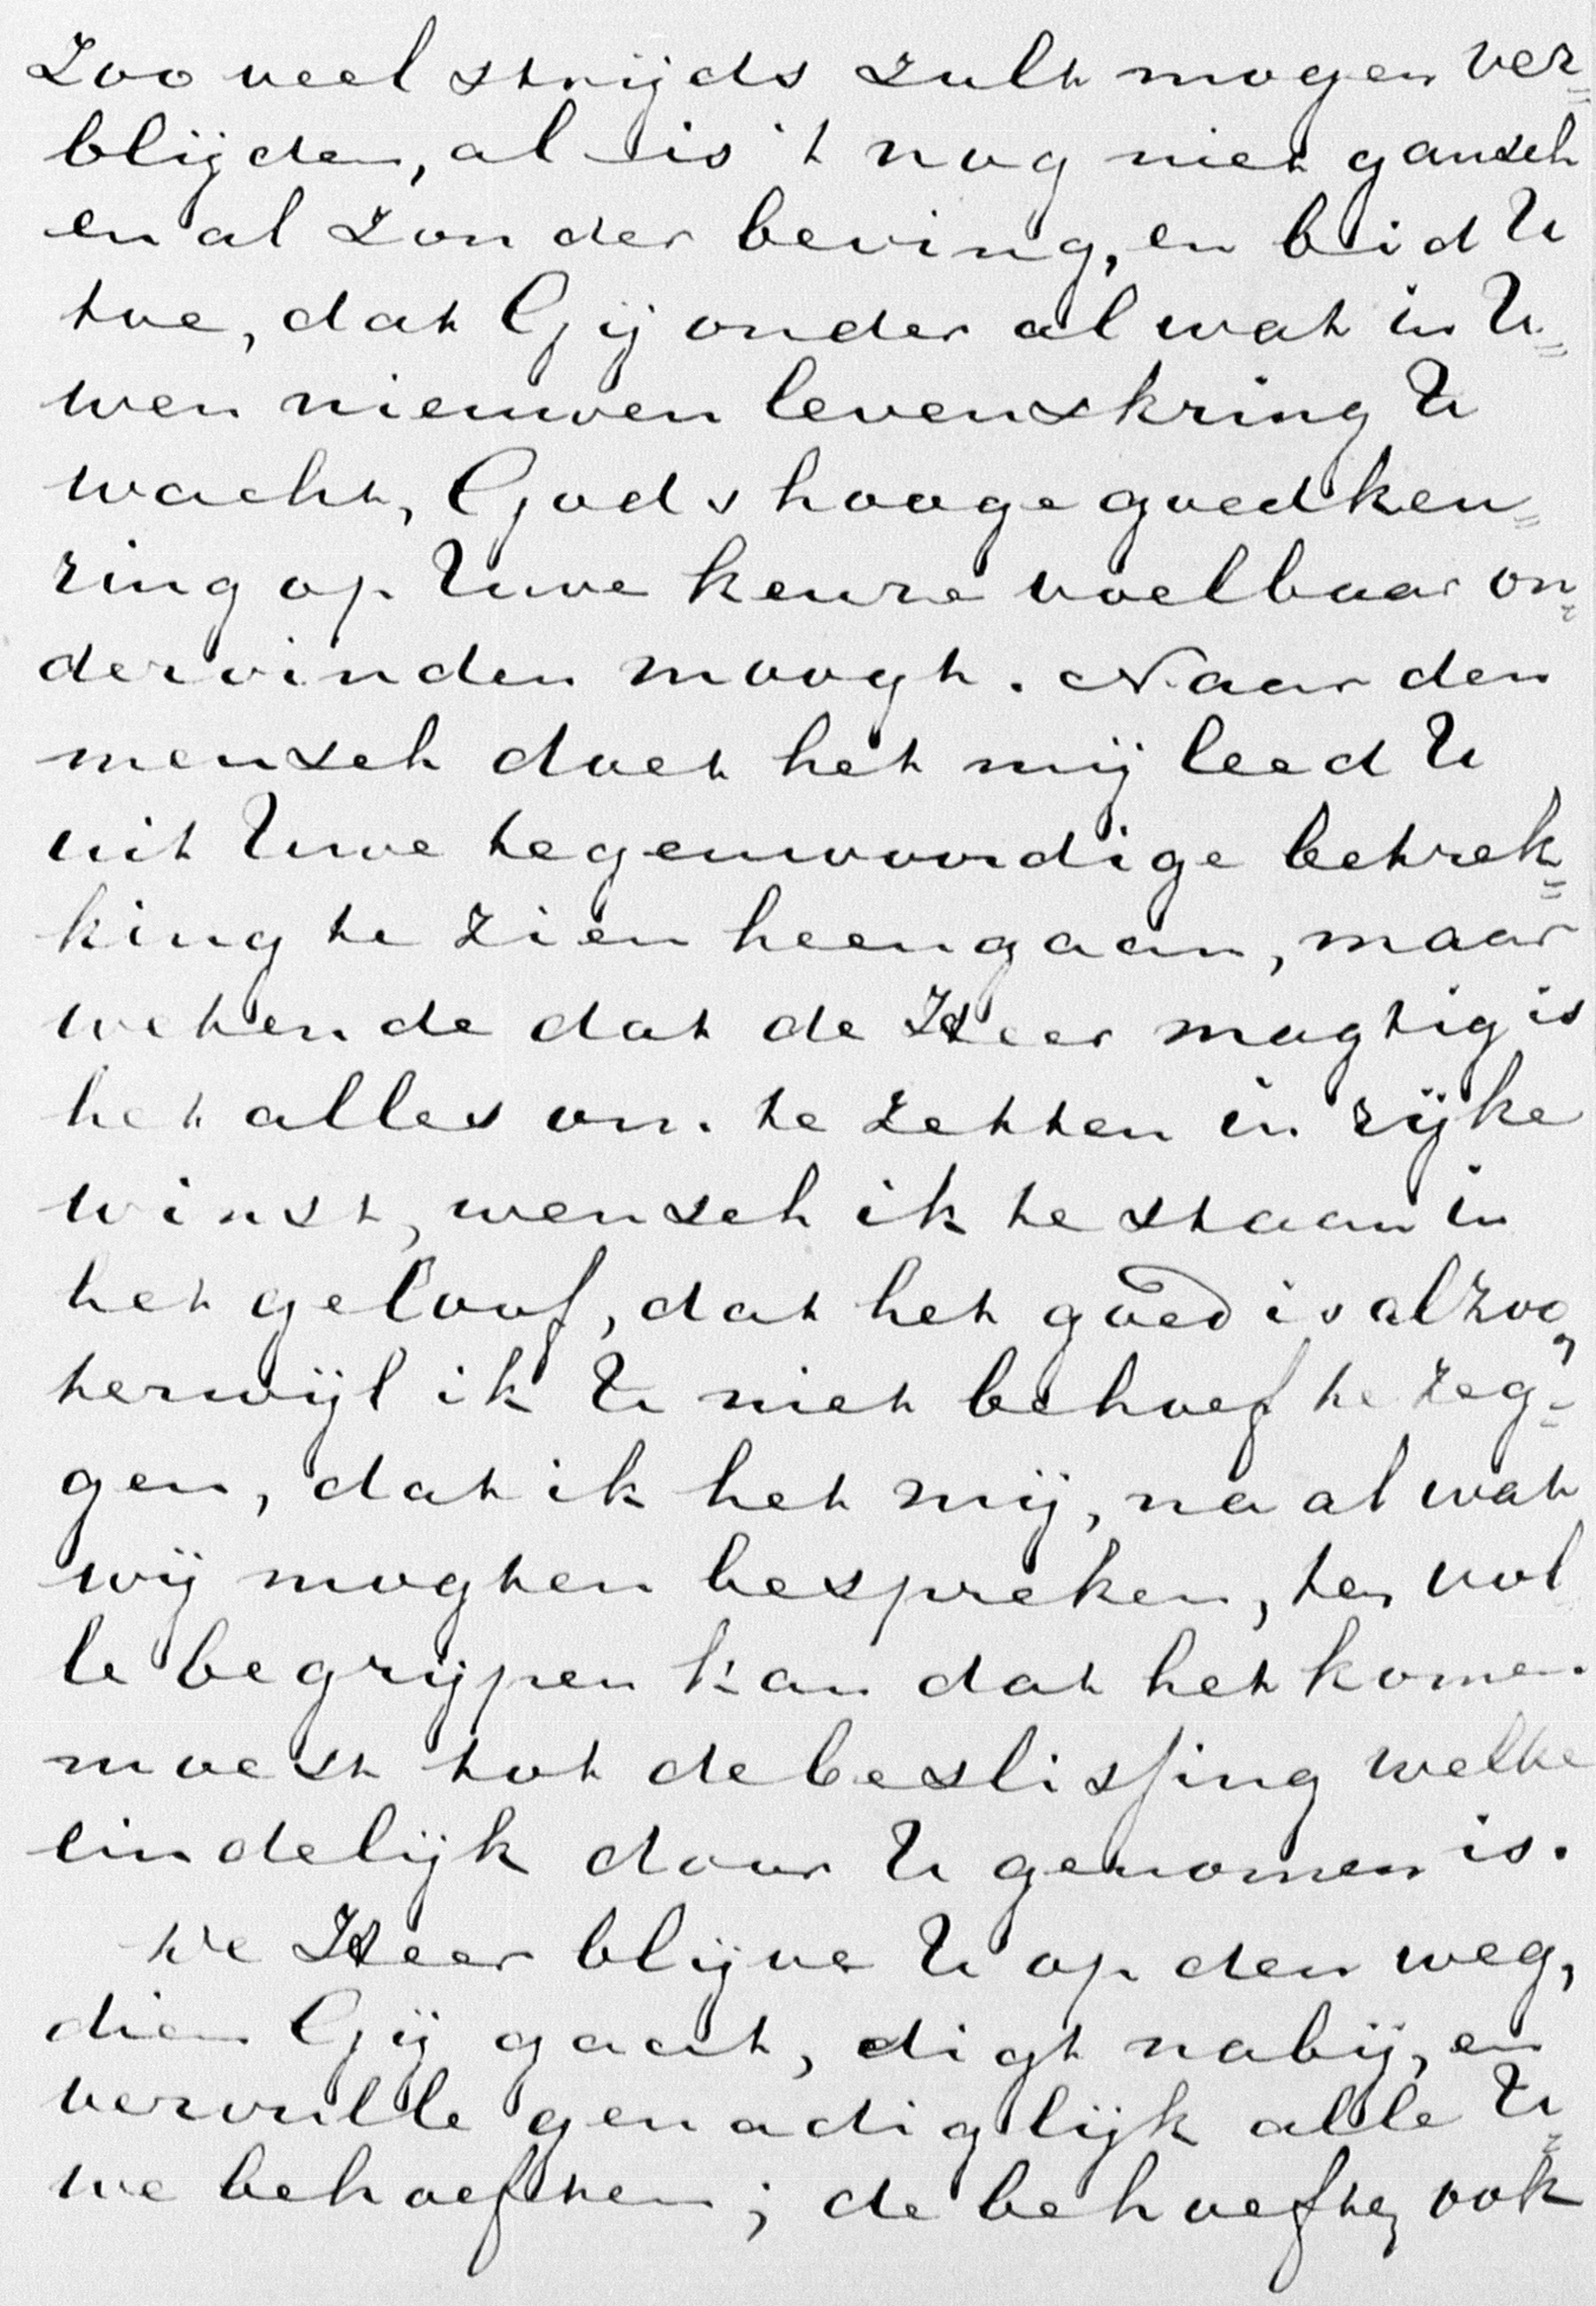 Zoo veel strijds zult mogen ver=
blijden, al is 't nog niet gansch
en al zonder beving, en bid U
toe, dat Gij onder al wat in U=
wen nieuwen levenskring U
wacht, Gods hooge goedkeu=
ring op Uwe keuze voelbaar on=
dervinden moogt. Naar den
mensch doet het mij leed U
uit Uwe tegenwoordige betrek=
king te zien heengaan, maar
wetende dat de Heer magtig is
het alles om te zetten in rijke
winst, wensch ik te staan in
het geloof, dat het goed is alzoo,
terwijl ik U niet behoef te zeg=
gen, dat ik het mij, na al wat
wij mogten bespreken, ten vol
le begrijpen kan dat het komen
moest tot de beslissing welke
eindelijk door U genomen is.
De Heer blijve U op den weg,
dien Gij gaat, digt nabij, en
vervulle genadiglijk alle U=
we behoeften; de behoefte ook